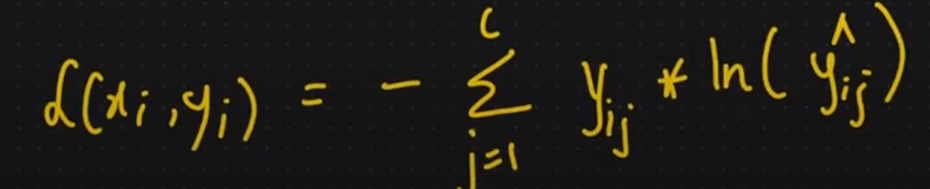 L(xᵢ, yᵢ) = - ∑_{j=1}^{c} y_{ij} * ln(ŷ_{ij})